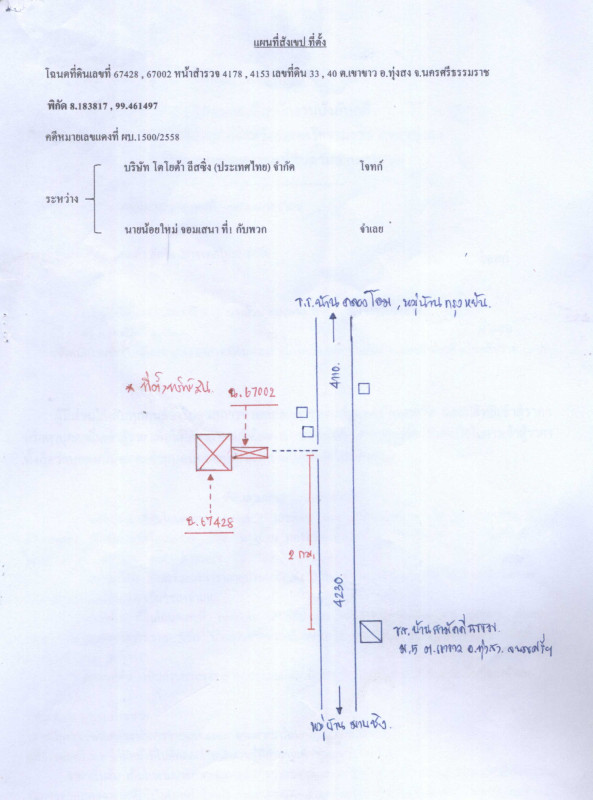 แผนที่สังเขป ที่ตั้ง
โฉนดที่ดินเลขที่ 67428 , 67002 หน้าสำรวจ 4178 , 4153 เลขที่ดิน 33 , 40 ต.เขาขาว อ.ทุ่งสง จ.นครศรีธรรมราช
พิกัด 8.183817 , 99.461497
คดีหมายเลขแดงที่ ผบ.1500/2558
บริษัท โตโยต้า ลีสซิ่ง (ประเทศไทย) จำกัด โจทก์
ระหว่าง
นายน้อยใหม่ จอมเสนา ที่1 กับพวก จำเลย
ร.ร.บ้านคลองโอม , หมู่บ้านกรุงหยัน
4110.
* ที่ตั้งทรัพย์สิน
ฉ.67002
ฉ.67428
2 กม.
4230.
ร.ร.บ้าน
ม.5 ต.เขาขาว อ.ทุ่งสง จ.นครศรีฯ
หมู่บ้าน